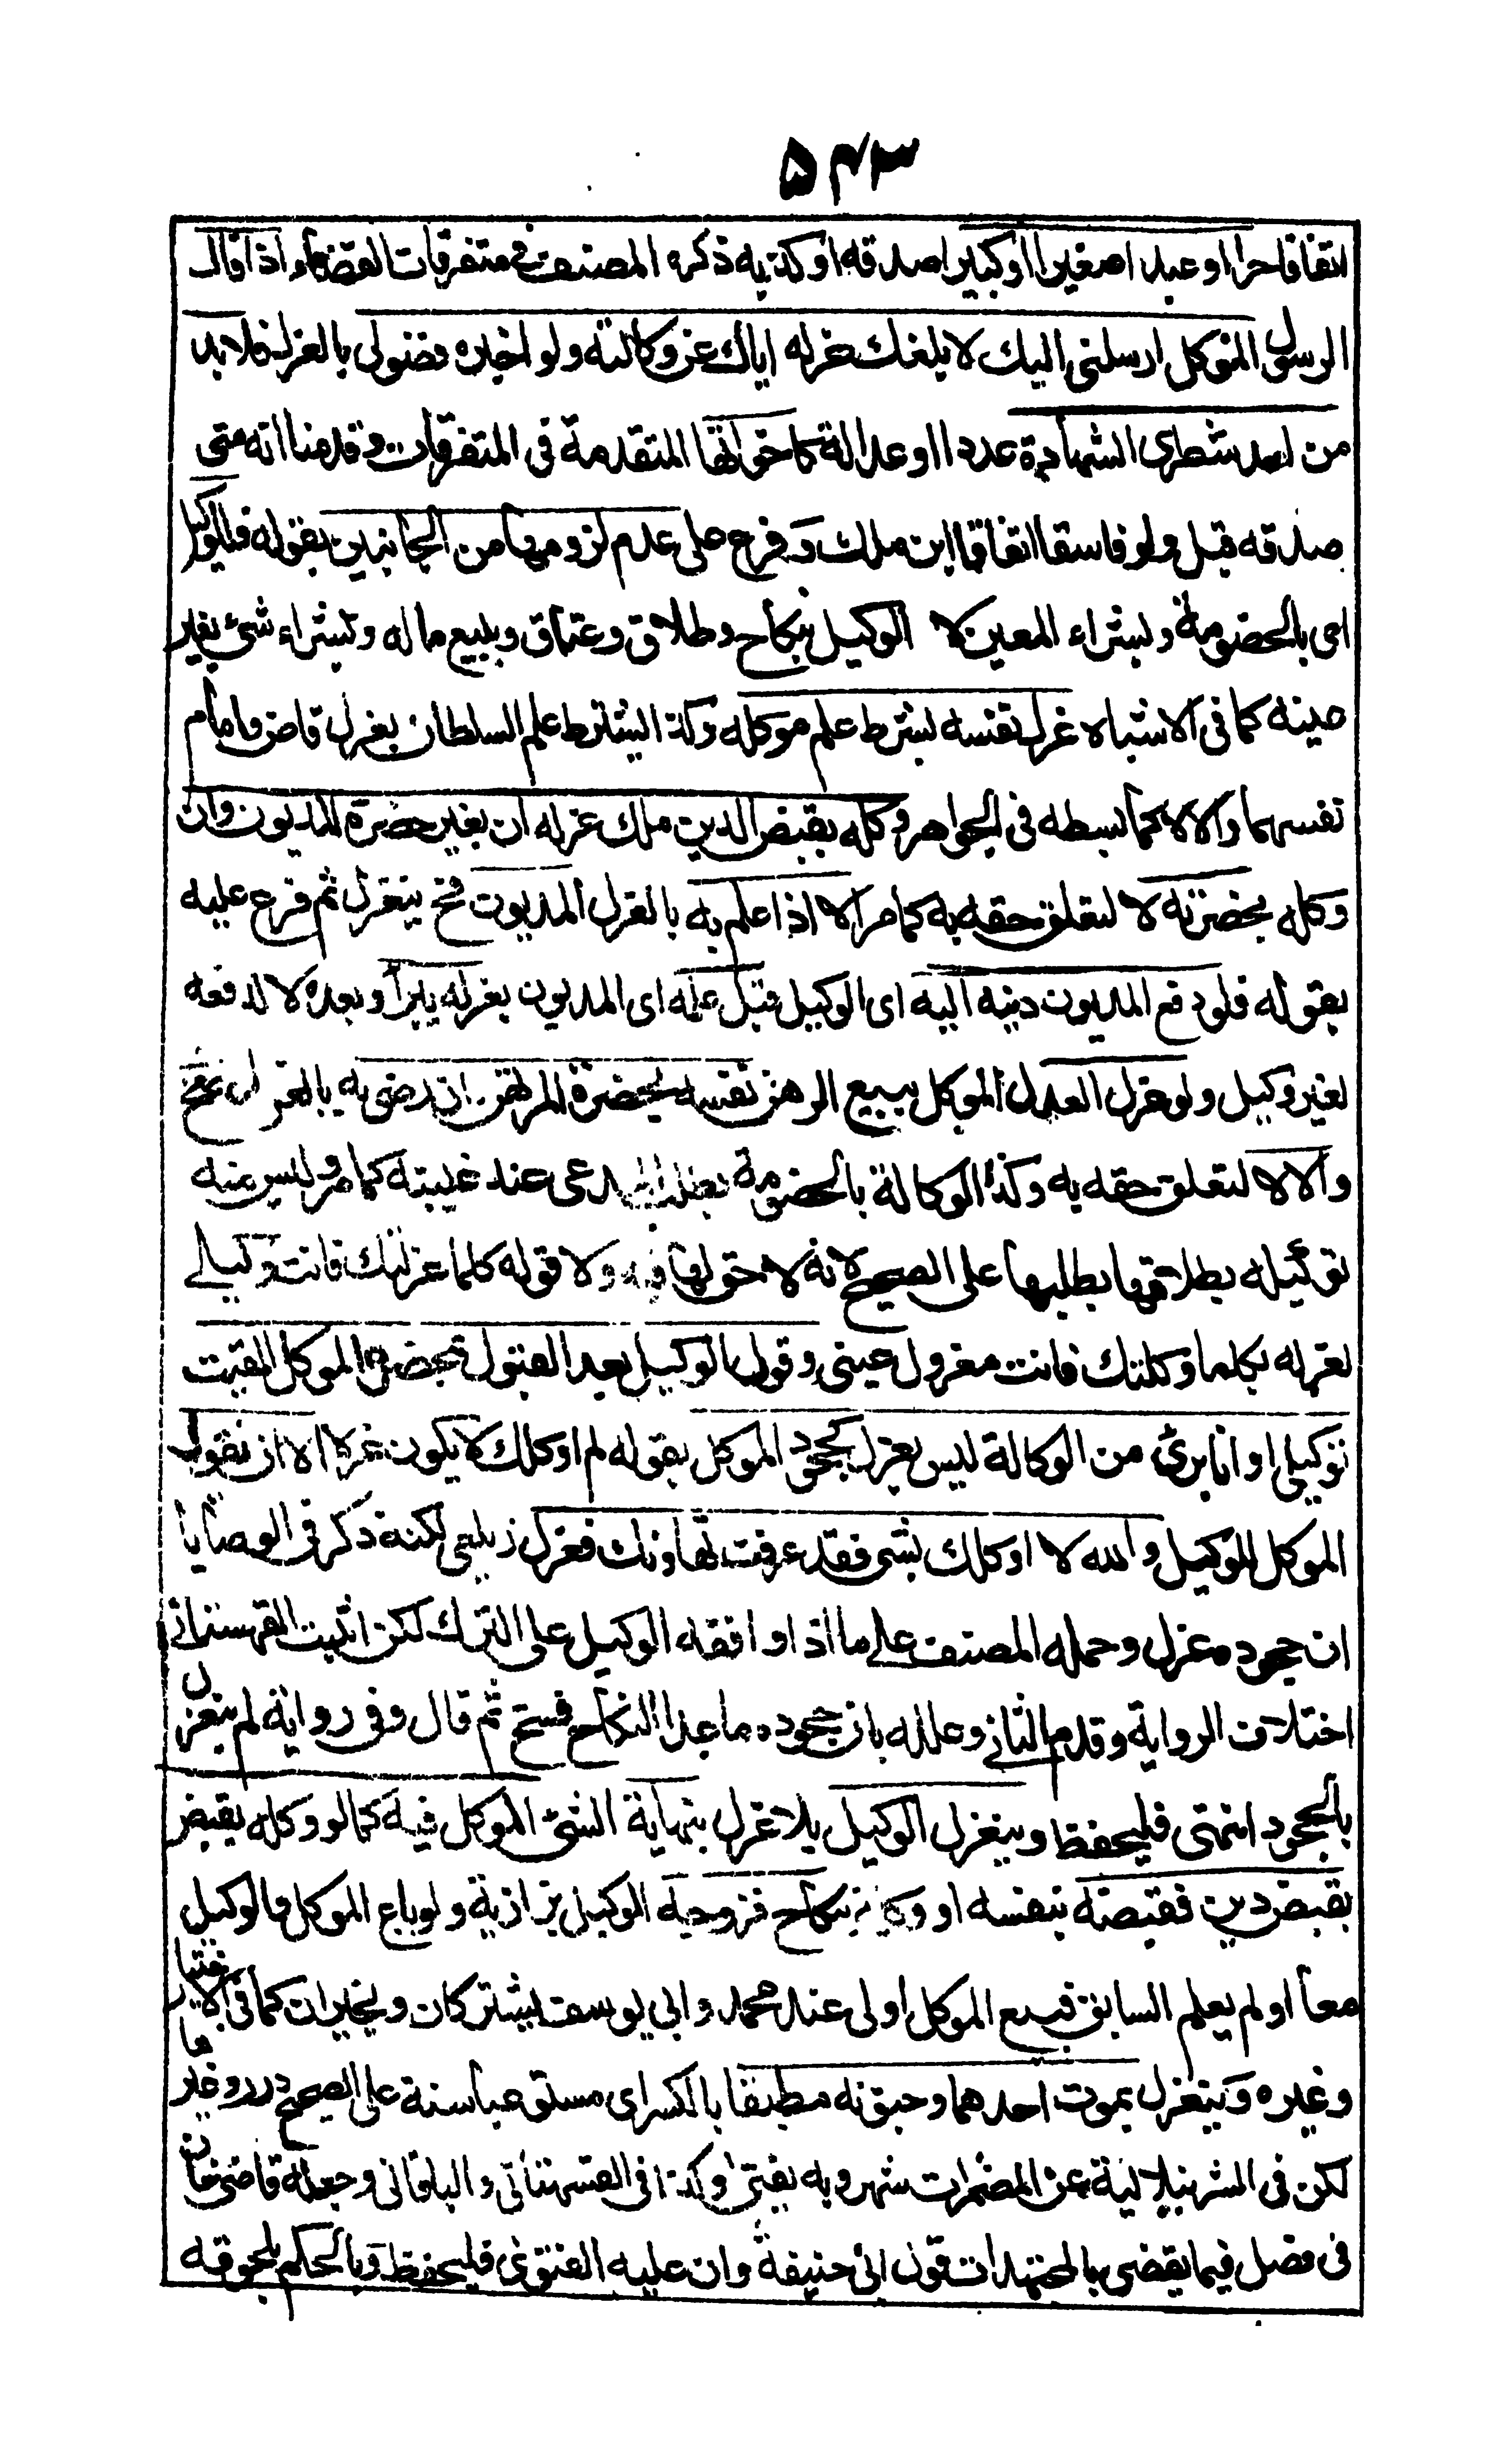 ۵۴۳
اتفاقا حرا او عبدا صغيرا او كبيرا صدقه او كذبه ذكره المصنف في متفرقات القضاء اذا قال
الرسول الموكل ارسلنى اليك لا بلغك عزله اياك عن وكالته ولو اخبره فضولى بالعزل فلا بد
من احد شطرى الشهادة عددا او عدالة كاخواتها المتقدمة فى المتفرقات وقدمنا انه متى
صدقه قبل ولو فاسقا اتفاقا ابن ملك وفرع على عدم لزومها من الجانبين بقوله فللوكيل
اى بالخصومة وبشراء المعين لا الوكيل بنكاح وطلاق وعتاق وببيع ماله وبشراء شئ بغير
عينه كما فى الاشباه عزل نفسه بشرط علم موكله وكذا يشترط علم السلطان بعزل قاض وامام
نفسهما والا لا كما بسطه فى الجواهر وكله بقبض الدين ملك عزله ان بغير حضرة المديون وان
وكله بحضرته لا لتعلق حقه به كما مر الا اذا علم به بالعزل المديون فح ينعزل ثم فرع عليه
بقوله فلو دفع المديون دينه اليه اى الوكيل قبل علمه اى المديون بعزله يبرأ وبعده لا لدفعه
لغير وكيل ولو عزل العدل الموكل ببيع الرهن نفسه بحضرة المرتهن ان رضى به بالعزل صح
والا لا لتعلق حقه به وكذا الوكالة بالخصومة بطلب المدعى عند غيبته كما مر وليس منه
توكيله بطلاقها بطلبها على الصحيح لانه لا حق لها فيه ولا قوله كلما عزلتك فانت وكيلى
لعزله بكلما وكلتك فانت معزول عينى وقول الوكيل بعد القبول بحضرة الموكل القيت
توكيلى او انا برئ من الوكالة ليس بعزل كجحود الموكل بقوله لم اوكلك لا يكون عزلا الا ان يقول
الموكل للوكيل والله لا اوكلك بشئ فقد عرفت تهاونك فعزل زيلعى لكنه ذكر فى الوصايا
ان جحوده عزل وحمله المصنف على ما اذا وافقه الوكيل على الترك لكن اثبت القهستانى
اختلاف الرواية وقدم الثانى وعلله بان جحوده ما عدا النكاح فسخ ثم قال وفى رواية لم ينعزل
بالجحود انتهى فليحفظ وينعزل الوكيل بلا عزل بنهاية الشئ الموكل فيه كما لو وكله بقبض
بقبض دين فقبضه بنفسه او وكله بنكاح فزوجه الوكيل بزازية ولو باع الموكل والوكيل
معا او لم يعلم السابق فبيع الموكل اولى عند محمد وابى يوسف يشتركان ويخيران كما فى الاختيار
وغيره وينعزل بموت احدهما وجنونه مطبقا بالكسر اى مستوعبا سنة على الصحيح درر وغيرها
لكن فى الشرنبلالية عن المضمرات شهر وبه يفتى وكذا فى القهستانى والباقانى وجعله قاضى خان
فى فصل فيما يقضى بالمجتهدات قول ابى حنيفة وان عليه الفتوى فليحفظ وبالحكم بلحوقه